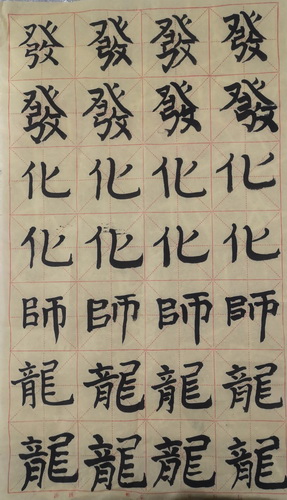 發發發發
發發發發
化化化化
化化化化
師師師師
龍龍龍龍
龍龍龍龍